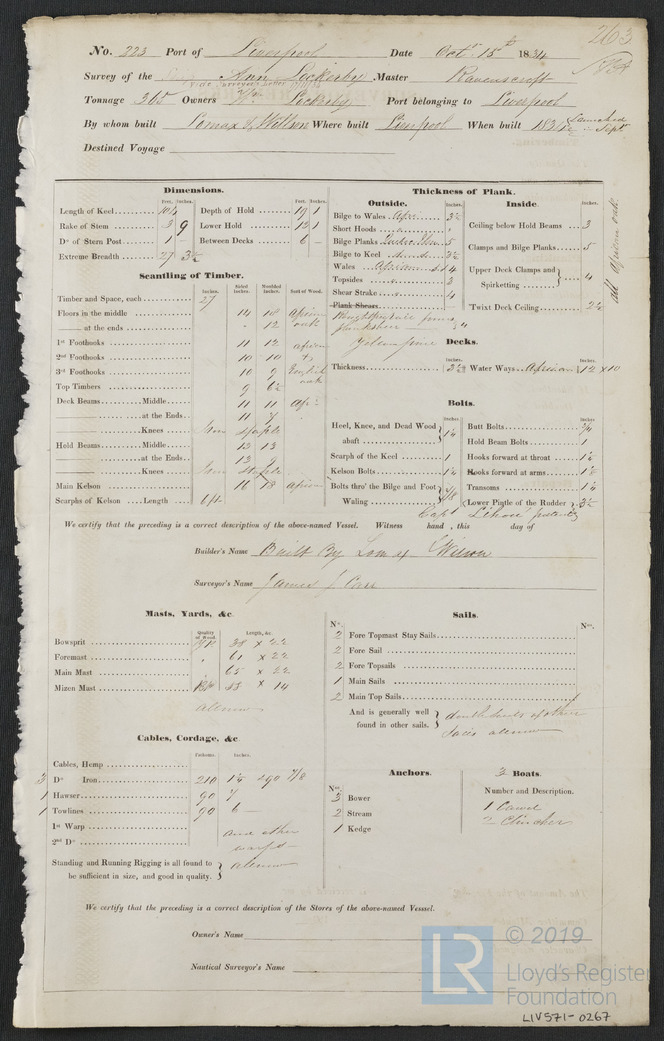 263
No. 223 Port of Liverpool Date Octr 15th 1834
Survey of the Ann Lockerby Master Ravenscroft
Tonnage 365 Owners Lockerby Port belonging to Liverpool
By whom built Lomax & Wilson Where built Liverpool When built 1834 Launched Sept
Destined Voyage
Dimensions.
Feet. Inches. Feet. Inches.
Length of Keel 104 Depth of Hold 19 1
Rake of Stem 3 9 Lower Hold 12 1
Do of Stern Post 1 Between Decks 6 —
Extreme Breadth 27 3½
Scantling of Timber.
Inches. Sided Inches. Moulded Inches. Sort of Wood.
Timber and Space, each 27
Floors in the middle 14 African
—— at the ends 12 oak
1st Foothooks 11 12 African
2nd Foothooks 10 10
3rd Foothooks 10 9 English
Top Timbers 9 6½ oak
Deck Beams Middle 11 11 Afrn
—— at the Ends 11 7
—— Knees Iron Staple
Hold Beams Middle 13 13
—— at the Ends 12 9
—— Knees Iron Staple
Main Kelson 16 18 African
Scarphs of Kelson Length 6ft
Thickness of Plank.
Outside. Inches.
Bilge to Wales Afrn 3½
Short Hoods
Bilge Planks 5
Bilge to Keel 3½
Wales African 4
Topsides 3
Shear Strake 4
Plank Shears
Yellow pine
Inside. Inches.
Ceiling below Hold Beams 3
Clamps and Bilge Planks 5
Upper Deck Clamps and Spirketting 4
Twixt Deck Ceiling 2½
all African oak
Decks.
Inches. Inches.
Thickness Water Ways African 12 x 10
Bolts.
Inches. Inches.
Heel, Knee, and Dead Wood abaft 1¼ Butt Bolts ¾
Scarph of the Keel 1 Hold Beam Bolts 1
Kelson Bolts 1¼ Hooks forward at throat
Bolts thro' the Bilge and Foot Waling Hooks forward at arms
Transoms
Lower Pintle of the Rudder 3½
Capt Lihou's patent
We certify that the preceding is a correct description of the above-named Vessel. Witness hand, this day of
Builder's Name Built By Lomax & Wilson
Surveyor's Name James J Carr
Masts, Yards, &c.
Quality of Wood Length, &c.
Bowsprit 38 x 22
Foremast 61 x 22
Main Mast 65 x 22
Mizen Mast 55 x 14
all new
Sails.
No. No.
2 Fore Topmast Stay Sails
2 Fore Sail
2 Fore Topsails
1 Main Sails
2 Main Top Sails
And is generally well found in other sails. double suits of other
Sails all new
Cables, Cordage, &c.
Fathoms. Inches.
Cables, Hemp
3 Do Iron 210
1 Hawser 90 7
1 Towlines 90 6
1st Warp and other
2nd Do warps
Standing and Running Rigging is all found to be sufficient in size, and good in quality. all new
Anchors.
No.
3 Bower
2 Stream
1 Kedge
3 Boats.
Number and Description.
1 Carvel
2 Clincher
We certify that the preceding is a correct description of the Stores of the above-named Vesssel.
Owner's Name
Nautical Surveyor's Name
LR © 2019
Lloyd's Register
Foundation
LIV571-0267